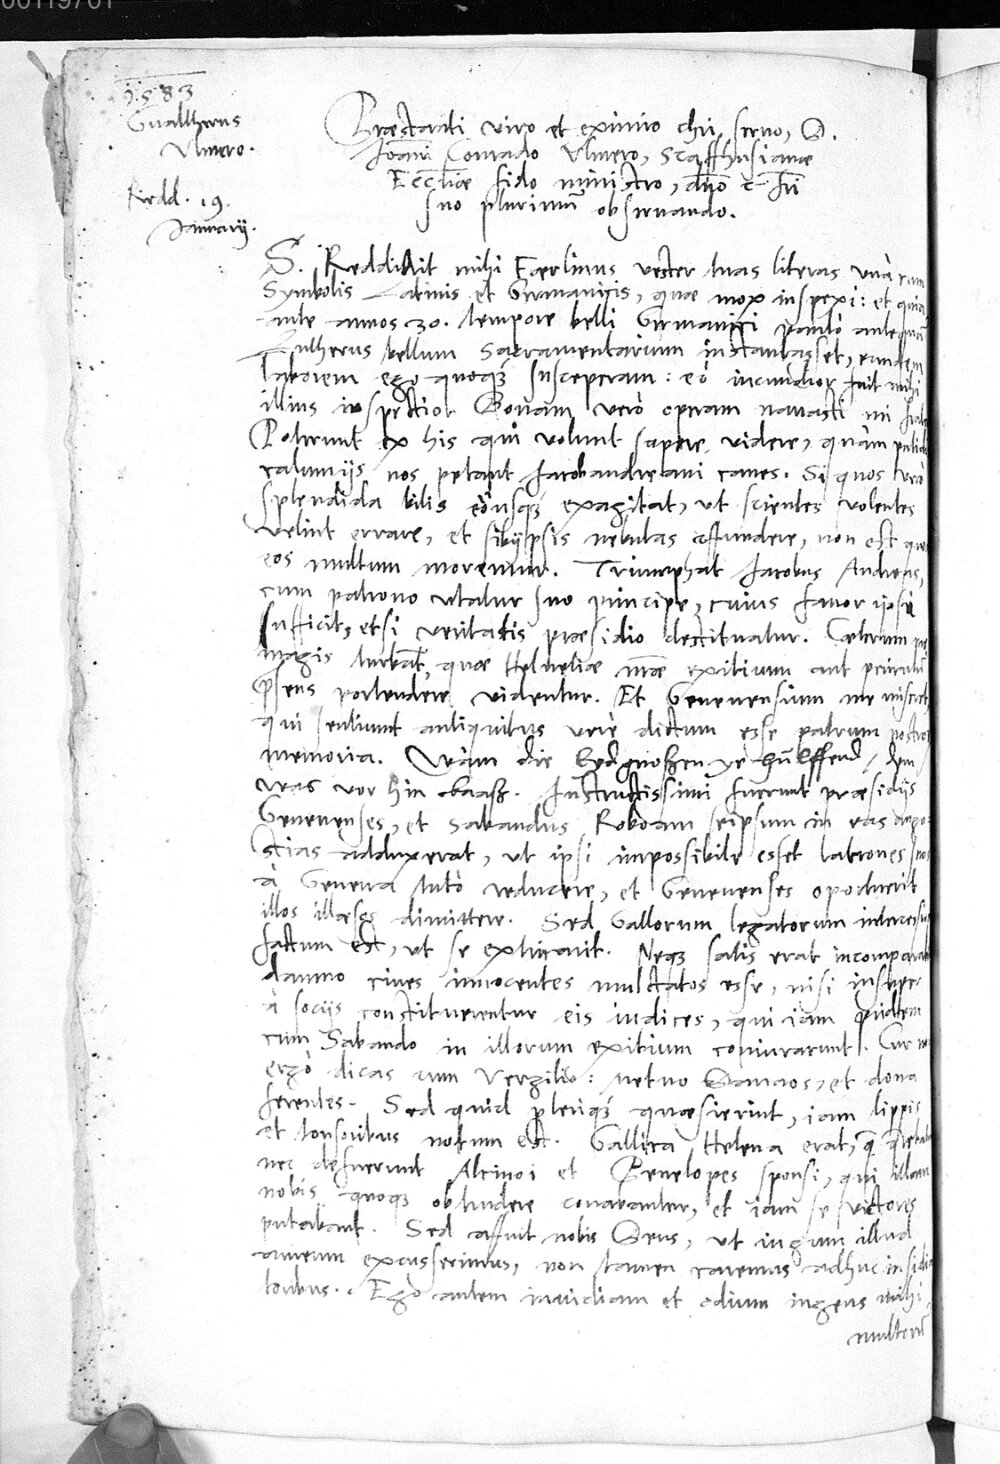 00119701
1583
Gualtherus
Ulmero.
Redd. 19.
Januarij.
Præstanti viro et eximio Chri servo, D.
Joanni Conrado Ulmero, Scaffhusianæ
Eccliæ fido ministro, dno et fri
suo plurimum observando.
S. Reddidit mihi Eærlinus vester tuas literas unà cum
Symbolis Latinis et Germanicis, quæ mox inspexi: et quia
ante annos 30. tempore belli Germanici paulò antequam
Lutherus bellum Sacramentarium instaurasset, eundem
laborem ego quoque susceperam: eò iucundior fuit mihi
illius inspectio. Bonam verò operam navasti mi frater
Poterunt ex his qui volunt sapere, videre, quàm putidis
calumnijs nos petant Jacobandreani canes. Si quos verò
splendida bilis eòusque exagitat, ut scientes volentes
velint errare, et sibijpsis nebulas offundere, non est quod
eos multum moremur. Triumphat Jacobus Andreas,
cum patrono utatur suo principe, cuius favor ipsi
sufficit, etsi veritatis præsidio destituatur. Cæterum me
magis turbant, quæ Helvetiæ nræ exitium aut periculum
præsens portendere videntur. Et Genevensium me miseret,
qui sentiunt antiquitus verè dictum esse patrum nostrorum
memoria. Wann die Eydgnoßen ye hülffend / dem
was vor hin baaß. Instructissimi fuerunt præsidijs
Genevenses, et Sabaudus Roboam seipsum in eas angu-
stias adduxerat, ut ipsi impossibile esset latrones suos
à Geneva tutò reducere, et Genevenses oportuerit
illos illæsos dimittere. Sed Gallorum legatorum intercessione
factum est, ut se extricavit. Neque satis erat incomparabili
damno cives innocentes mulctatos esse, nisi insuper
à socijs constituerentur eis iudices, qui iam pridem
cum Sabaudo in illorum exitium coniurarunt. Cur non
ergò dicas cum Vergilio: metuo Danaos, et dona
ferentes. Sed quid plerique quæsierint, iam lippis
et tonsoribus notum est. Gallica Helena erat,
nec defuerunt Alcinoi et Penelopes sponsi, qui illam
nobis quoque obtrudere conabantur, et iam se victores
putabant. Sed affuit nobis Deus, ut iugum illud
aureum excusserimus, non tamen caremus adhuc insidia-
toribus. Ego autem invidiam et odium ingens mihi
multorum